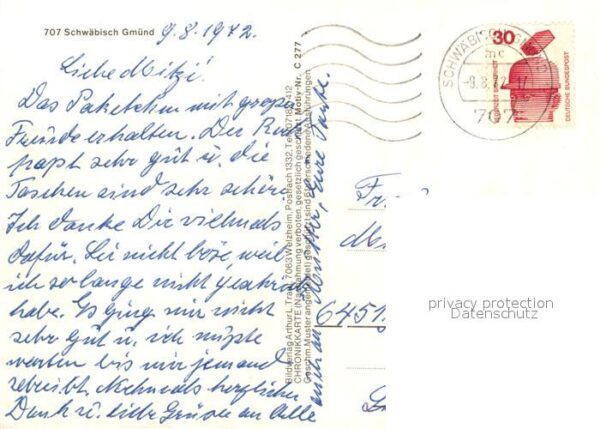 707 Schwäbisch Gmünd
9.8.1972.
Liebe Mitzi!
Das Paketchen mit großer
Freude erhalten. Der Rock
paßt sehr gut u. die
Taschen sind sehr schön.
Ich danke Dir vielmals
dafür. Sei nicht böse, weil
ich so lange nicht geschrieben
habe. Es ging mir nicht
sehr gut u. ich mußte
warten bis mir jemand
schreibt. Nochmals herzlichen
Dank u. liebe Grüße an Alle
Eure Tante
Bildverlag Arthur L. Traut, 7063 Welzheim, Postfach 1332, Tel. (07182) 412
CHRONIKKARTE (Nachahmung verboten, gesetzlich geschützt) Motiv-Nr. C 277
SCHWÄBISCH GMÜND
mc
-9.8.72-17
707
30
DEUTSCHE BUNDESPOST
Fr
6451
privacy protection
Datenschutz